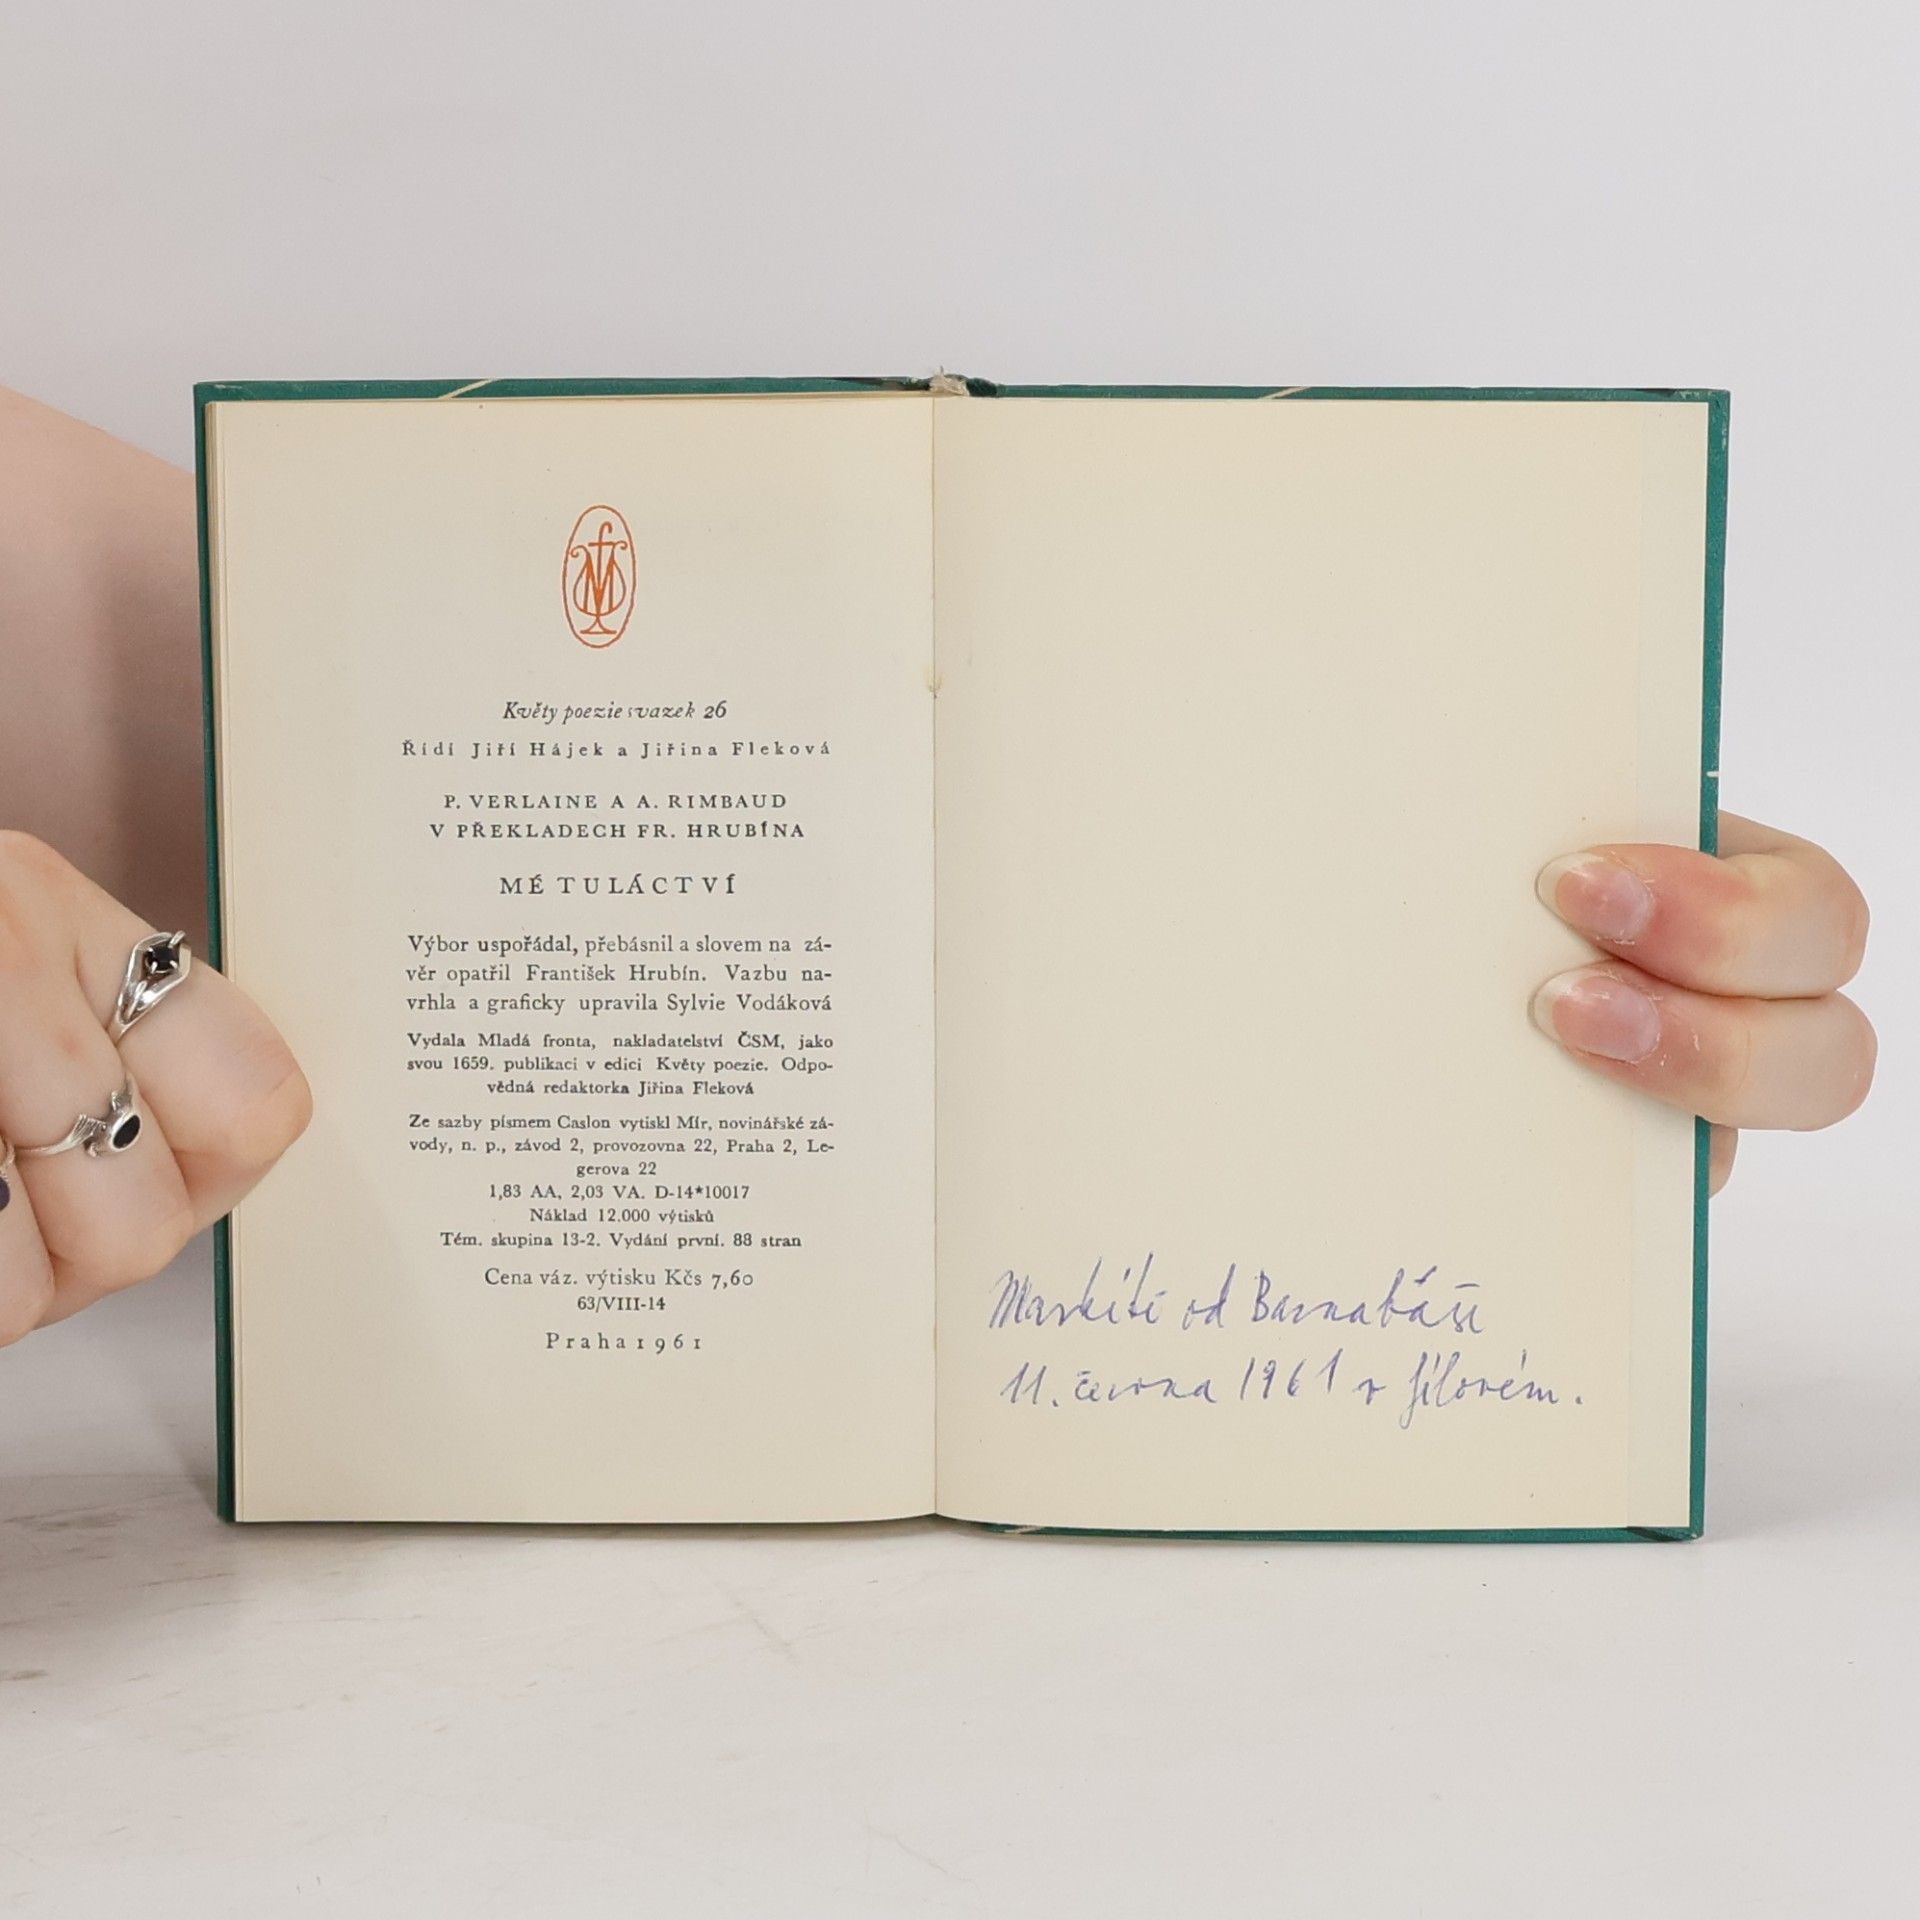 Květy poezie svazek 26
Řídí Jiří Hájek a Jiřina Fleková
P. VERLAINE A A. RIMBAUD
V PŘEKLADECH FR. HRUBÍNA
MÉ TULÁCTVÍ
Výbor uspořádal, přebásnil a slovem na zá-
věr opatřil František Hrubín. Vazbu na-
vrhla a graficky upravila Sylvie Vodáková
Vydala Mladá fronta, nakladatelství ČSM, jako
svou 1659. publikaci v edici Květy poezie. Odpo-
vědná redaktorka Jiřina Fleková
Ze sazby písmem Caslon vytiskl Mír, novinářské zá-
vody, n. p., závod 2, provozovna 22, Praha 2, Le-
gerova 22
1,83 AA, 2,03 VA. D-14*10017
Náklad 12.000 výtisků
Tém. skupina 13-2. Vydání první. 88 stran
Cena váz. výtisku Kčs 7,60
63/VIII-14
Praha 1961
Markítě od Barnabáše
11. června 1961 v Jílovém.